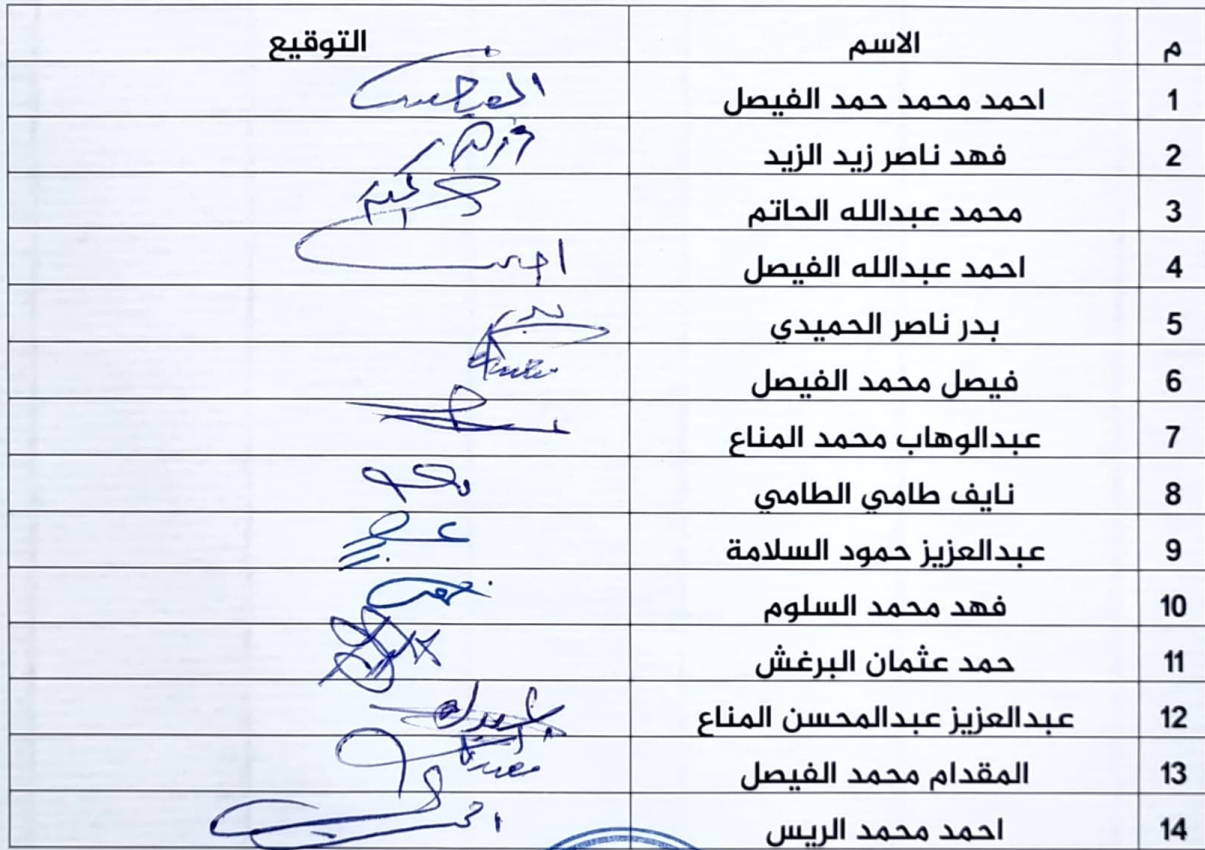 م الاسم التوقيع
1 احمد محمد حمد الفيصل
2 فهد ناصر زيد الزيد
3 محمد عبدالله الحاتم
4 احمد عبدالله الفيصل
5 بدر ناصر الحميدي
6 فيصل محمد الفيصل
7 عبدالوهاب محمد المناع
8 نايف طامي الطامي
9 عبدالعزيز حمود السلامة
10 فهد محمد السلوم
11 حمد عثمان البرغش
12 عبدالعزيز عبدالمحسن المناع
13 المقدام محمد الفيصل
14 احمد محمد الريس